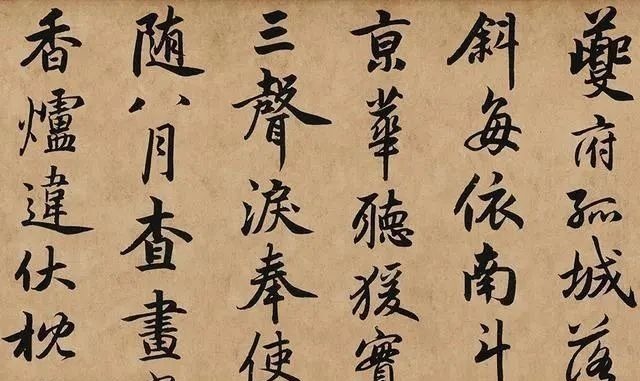 夔府孤城落
斜每依南斗
京華聽猨實
三聲淚奉使
随八月查畫
香爐違伏枕